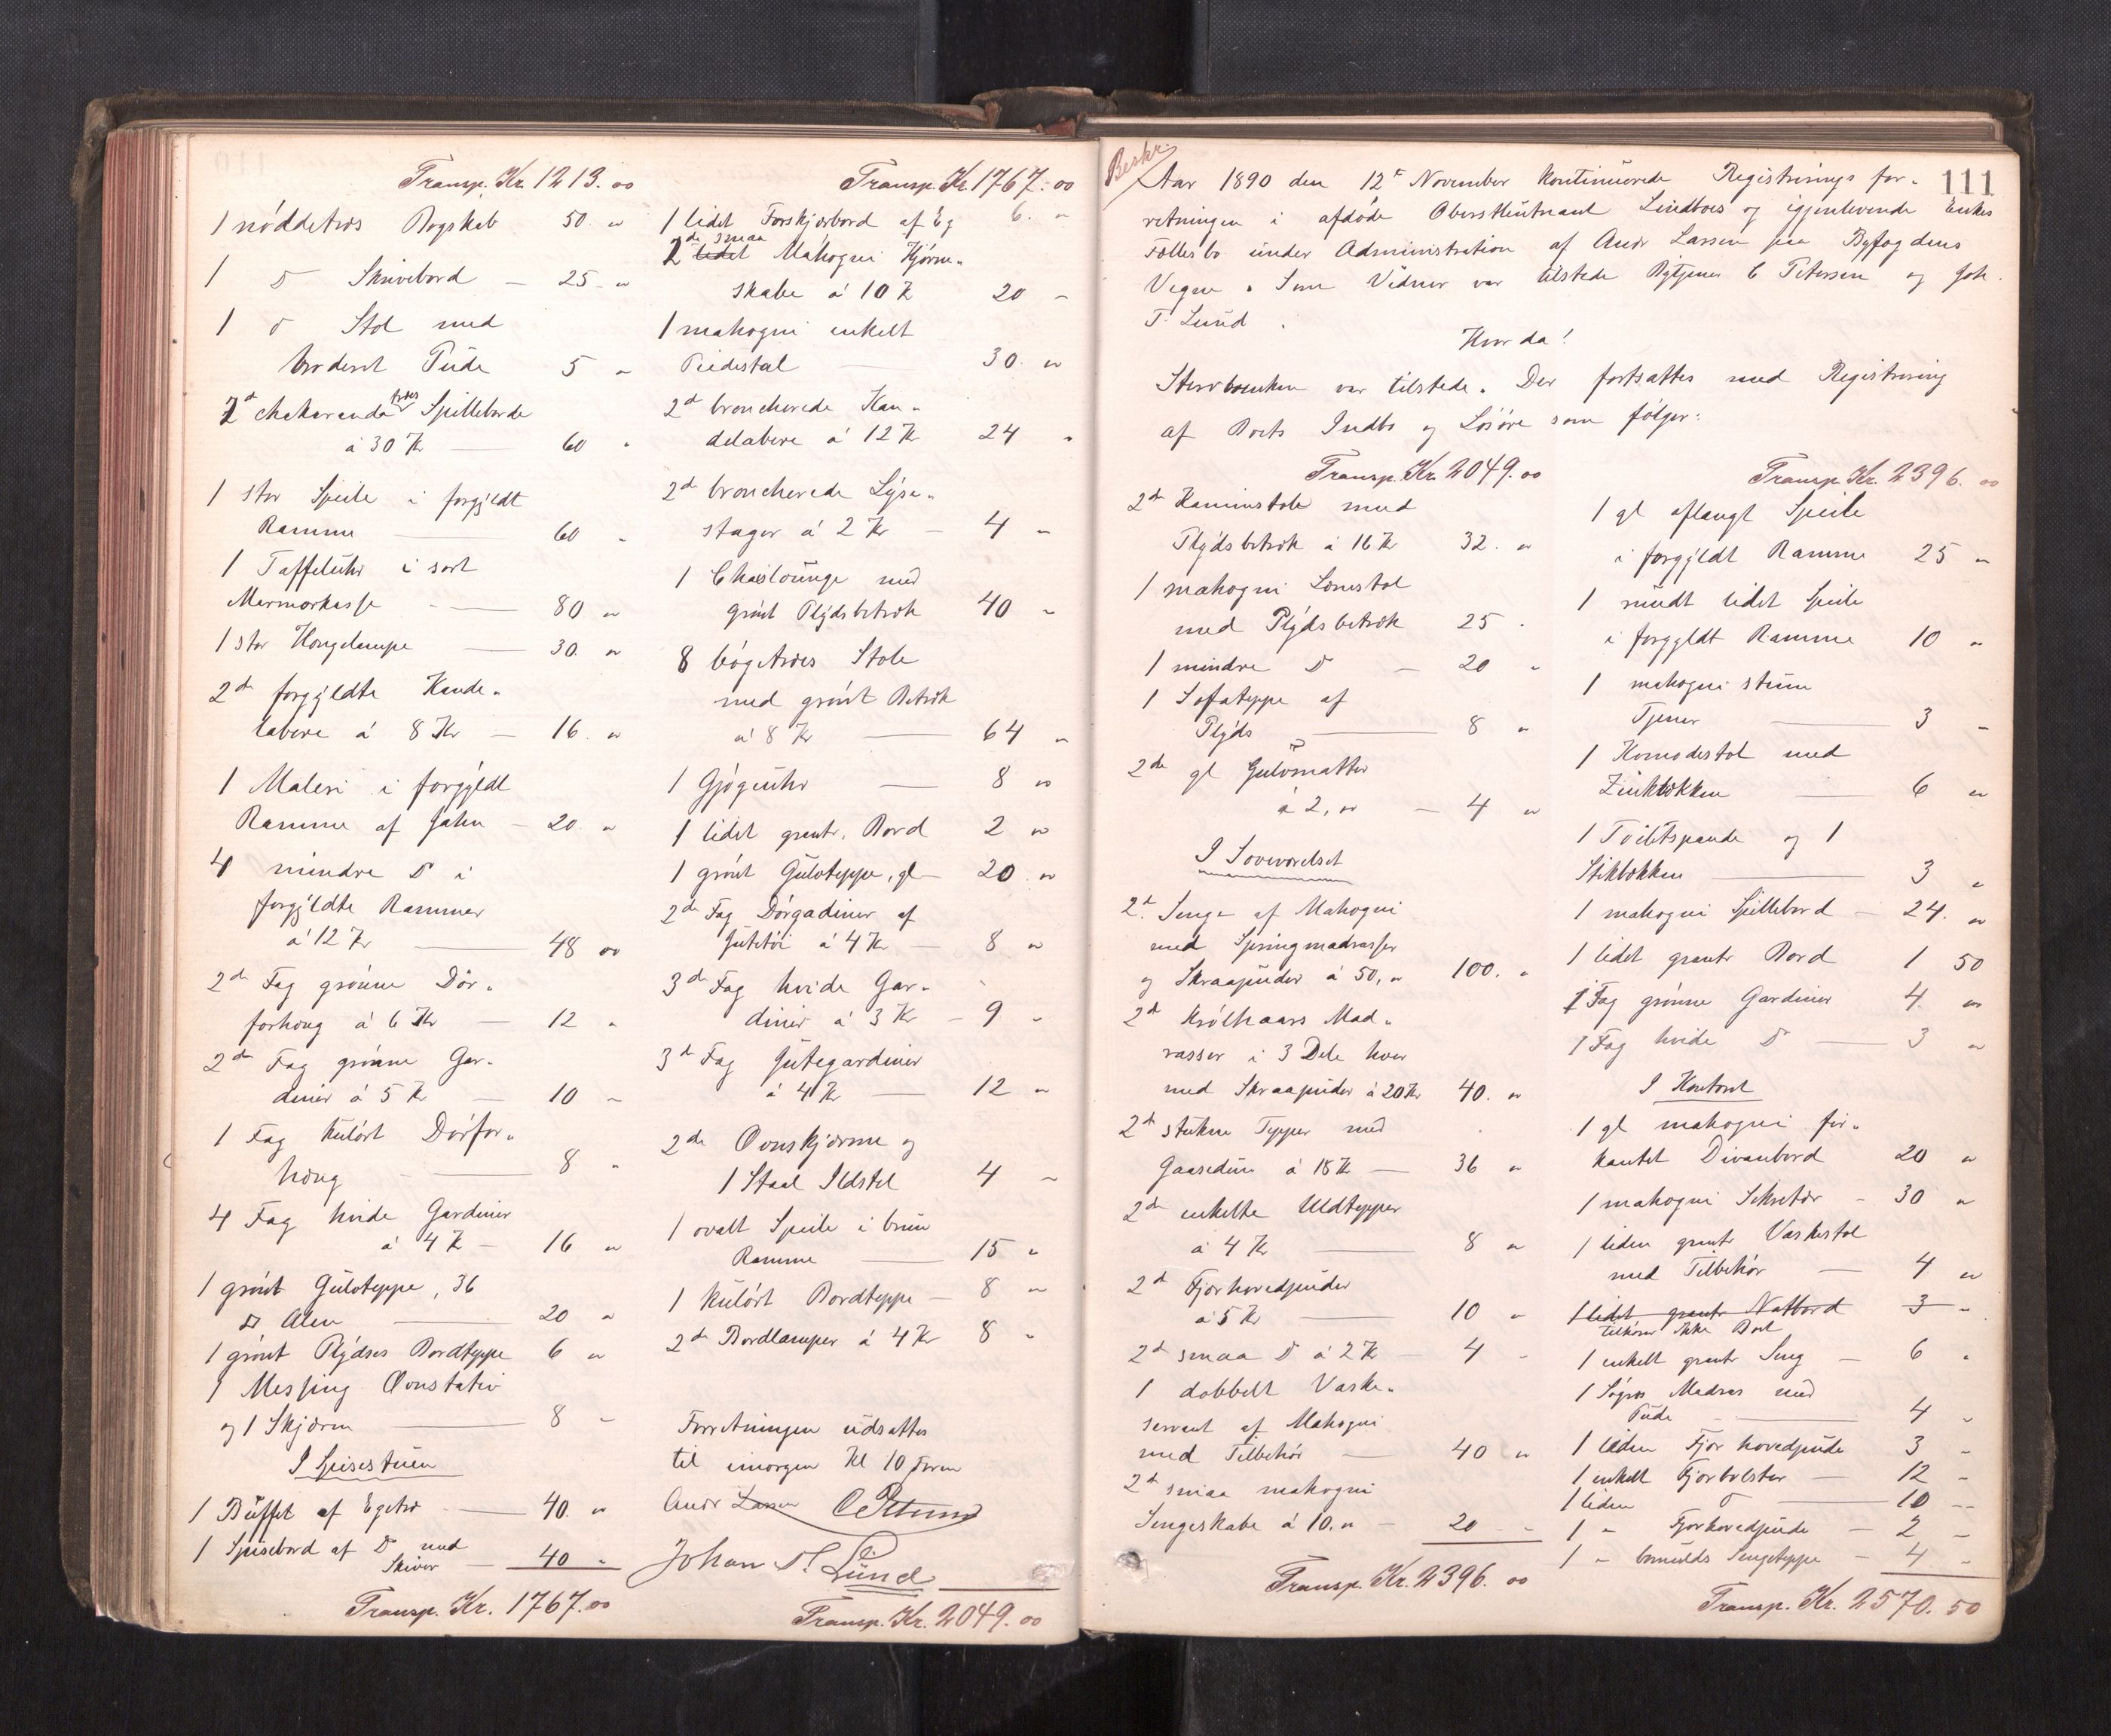 Transp. Kr. 1213. 00
1 nøddetræs Bogskab 50. "
1 D Skrivebord — 25 - "
1 D Stol med
broderet Pude 5 "
2de chakaranda træes Spilleborde
á 30 Kr — 60 "
1 stor Speile i forgyldt
Ramme — 60 "
1 Taffeluhr i sort
Marmorkasse — 80 "
1 stor Hængelampe — 30. "
2de forgyldte Kande-
labere á 8 Kr — 16. "
1 Maleri i forgyldt
Ramme af Jahn — 20 "
4 mindre D i
forgyldte Rammer
á 12 Kr — 48 00
2de Fag grønne Dør-
forhæng á 6 Kr — 12 "
2de Fag grønne Gar-
diner á 5 Kr — 10 "
1 Fag kulørt Dørfor-
hæng — 8 "
4 Fag hvide Gardiner
á 4 Kr — 16 "
1 grønt Gulvteppe, 36
□ Alen — 20 "
1 grønt Plydses Bordteppe 6 "
1 Messing Ovnstativ
og 1 Skjærm — 8 "
I Spisestuen
1 Buffet af Egetræ — 40. "
1 Spisebord af D med
Skiver — 40 "
Transp. Kr. 1767. 00
Transp. Kr. 1767. 00
1 lidet Forskjærbord af Eg 6. "
2de smaa lidet Mahogni Hjørne-
skabe á 10 Kr 20 "
1 mahogni enkelt
Piedestal — 30. "
2de broncherede Kan-
delabere á 12 Kr 24 "
2de broncherede Lyse-
stager á 2 Kr — 4 "
1 Chaislounge med
grønt Plydsbetræk 40 "
8 bøgetræes Stole
med grønt Betræk
á 8 Kr — 64 "
1 Gjøguhr — 8 "
1 lidet grantr. Bord 2 "
1 grønt Gulvteppe, gl — 20 "
2de Fag Dørgadiner af
Jutetøi á 4 Kr — 8 "
3de Fag hvide Gar-
diner á 3 Kr — 9 "
3de Fag Jutegardiner
á 4 Kr — 12 "
2de Ovnskjærme og
1 Staal Ildstel 4 "
1 ovalt Speile i brun
Ramme — 15 "
1 kulørt Bordteppe — 8 "
2de Bordlamper á 4 Kr 8 "
Forretningen udsattes
til imorgen Kl 10 Form
Andr Larsen C Petersen
Johan T. Lund
Transp. Kr. 2049. 00
Beskr.
111
Aar 1890 den 12te November kontinuerede Registrerings for-
retningen i afdøde Oberstleutnant Lindboes og igjenlevende Enkes
Fællesbo under Administration af Andr Larsen paa Byfogdens
Vegne. Som Vidner var tilstede Rgtjener C Petersen og Joh.
T. Lund.
Hvor da!
Stervboenken var tilstede. Der fortsattes med Registrering
af Boets Indbo og Løsøre som følger:
Transp. Kr. 2049. 00
2de Kaminstole med
Plydsbetræk á 16 Kr 32. "
1 mahogni Lænestol
med Plydsbetræk 25 "
1 mindre D — 20 "
1 Sofateppe af
Plyds — 8 "
2de gl Gulvmatter
á 2, " — 4 "
I Soveværelset
2de Senge af Mahogni
med Springmadrasser
og Skraapuder á 50, " 100. "
2de Krølhaars Mad-
rasser i 3 Dele hver
med Skraapuder á 20 Kr 40. "
2de stukne Tepper med
Gaasedun á 18 Kr — 36 "
2de enkelte Uldtepper
á 4 Kr — 8 "
2de Fjær hovedpuder
á 5 Kr — 10 "
2de smaa D á 2 Kr — 4 "
1 dobbelt Vaske-
servant af Mahogni
med Tilbehør — 40 "
2de smaa mahogni
Sengeskabe á 10. " — 20 "
Transp. Kr. 2396. 00
Transp. Kr. 2396. 00
1 gl aflangt Speile
i forgyldt Ramme 25 "
1 rundt lidet Speile
i forgyldt Ramme 10 "
1 mahogni stum
Tjener — 3 "
1 Komodestol med
Zinkbækken — 6 "
1 Toiletspande og 1
Stikbækken — 3 "
1 mahogni Spillebord — 24. "
1 lidet grantr Bord 1 50
1 Fag grønne Gardiner 4. "
1 Fag hvide D — 3 "
I Kontoret
1 gl mahogni fir-
kantet Divanbord 20 "
1 mahogni Sekretær — 30 "
1 liden grantr Vaskestol
med Tilbehør — 4 "
1 lidet grantr Natbord 3 "
tilhører ikke Boet
1 enkelt grantr Seng — 6 "
1 Søgræs Madras med
Pude — 4 "
1 liden Fjær hovedpude 3 "
1 enkelt Fjærbolster — 12 "
1 liden D — 10 "
1 " Fjærhovedpude — 2 "
1 " bomulds Sengeteppe — 4 "
Transp. Kr. 2570. 50